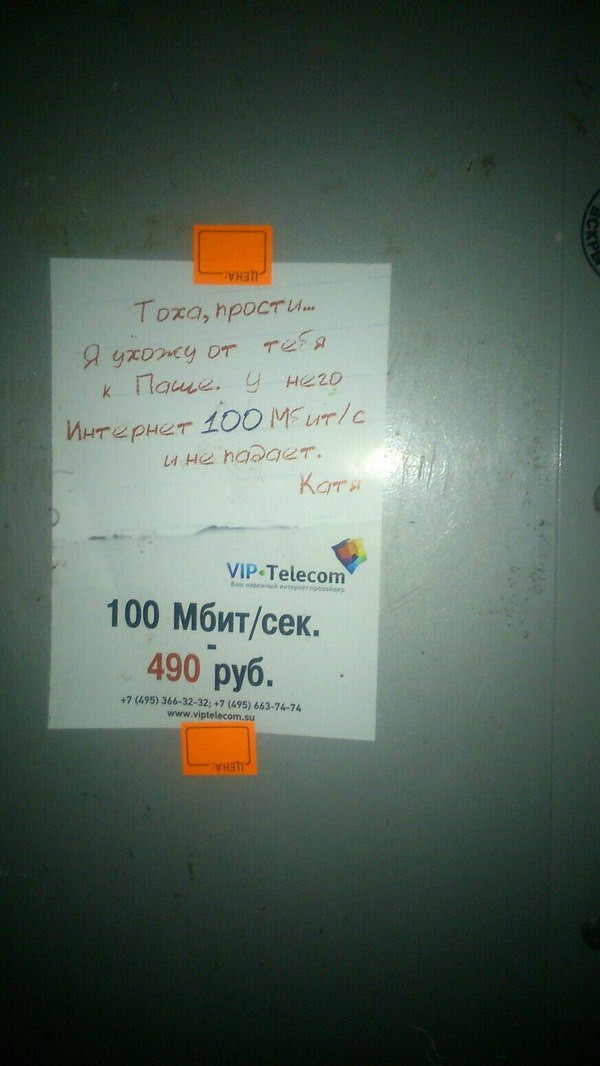 ЦЕНА:
Тоха, прости...
Я ухожу от тебя
к Паше. У него
Интернет 100 Мбит/с
и не падает.
Катя
VIP•Telecom
Ваш надежный интернет провайдер
100 Мбит/сек.
-
490 руб.
+7 (495) 366-32-32; +7 (495) 663-74-74
www.viptelecom.su
ЦЕНА: